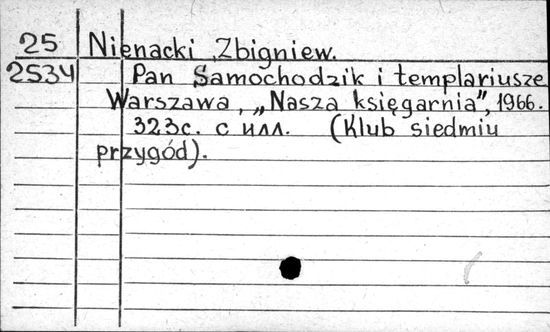 25 Nienacki Zbigniew.
2534 Pan Samochodzik i templariusze
Warszawa, „Nasza księgarnia", 1966.
323с. с илл. (Klub siedmiu
przygód).